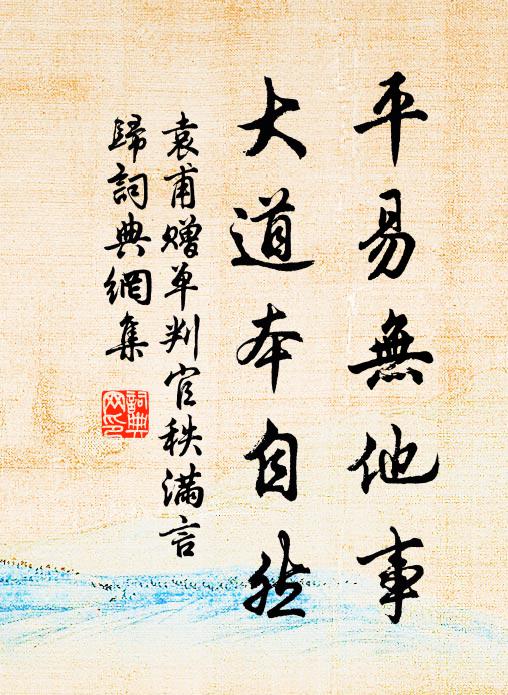 平易無他事
大道本自然
袁甫贈单判官秩滿言
歸詞典網集
詞典網印